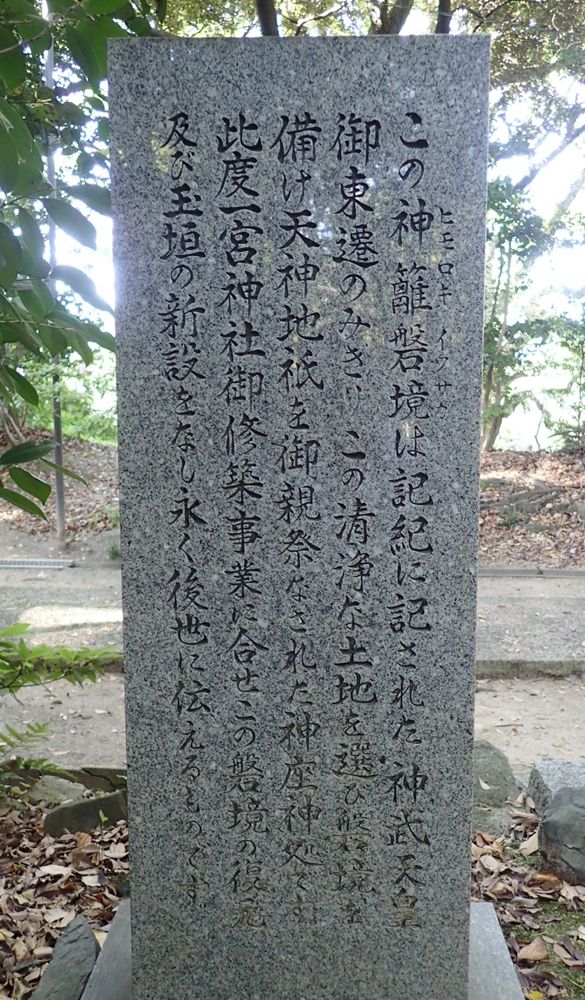 この神籬磐境は記紀に記された神武天皇
ヒモロギ イワサカ
御東遷のみぎりこの清浄な土地を選び磐境を
備け天神地祇を御親祭なされた神座神処です
此度一宮神社御修築事業に合せこの磐境の復元
及び玉垣の新設をなし永く後世に伝えるものです